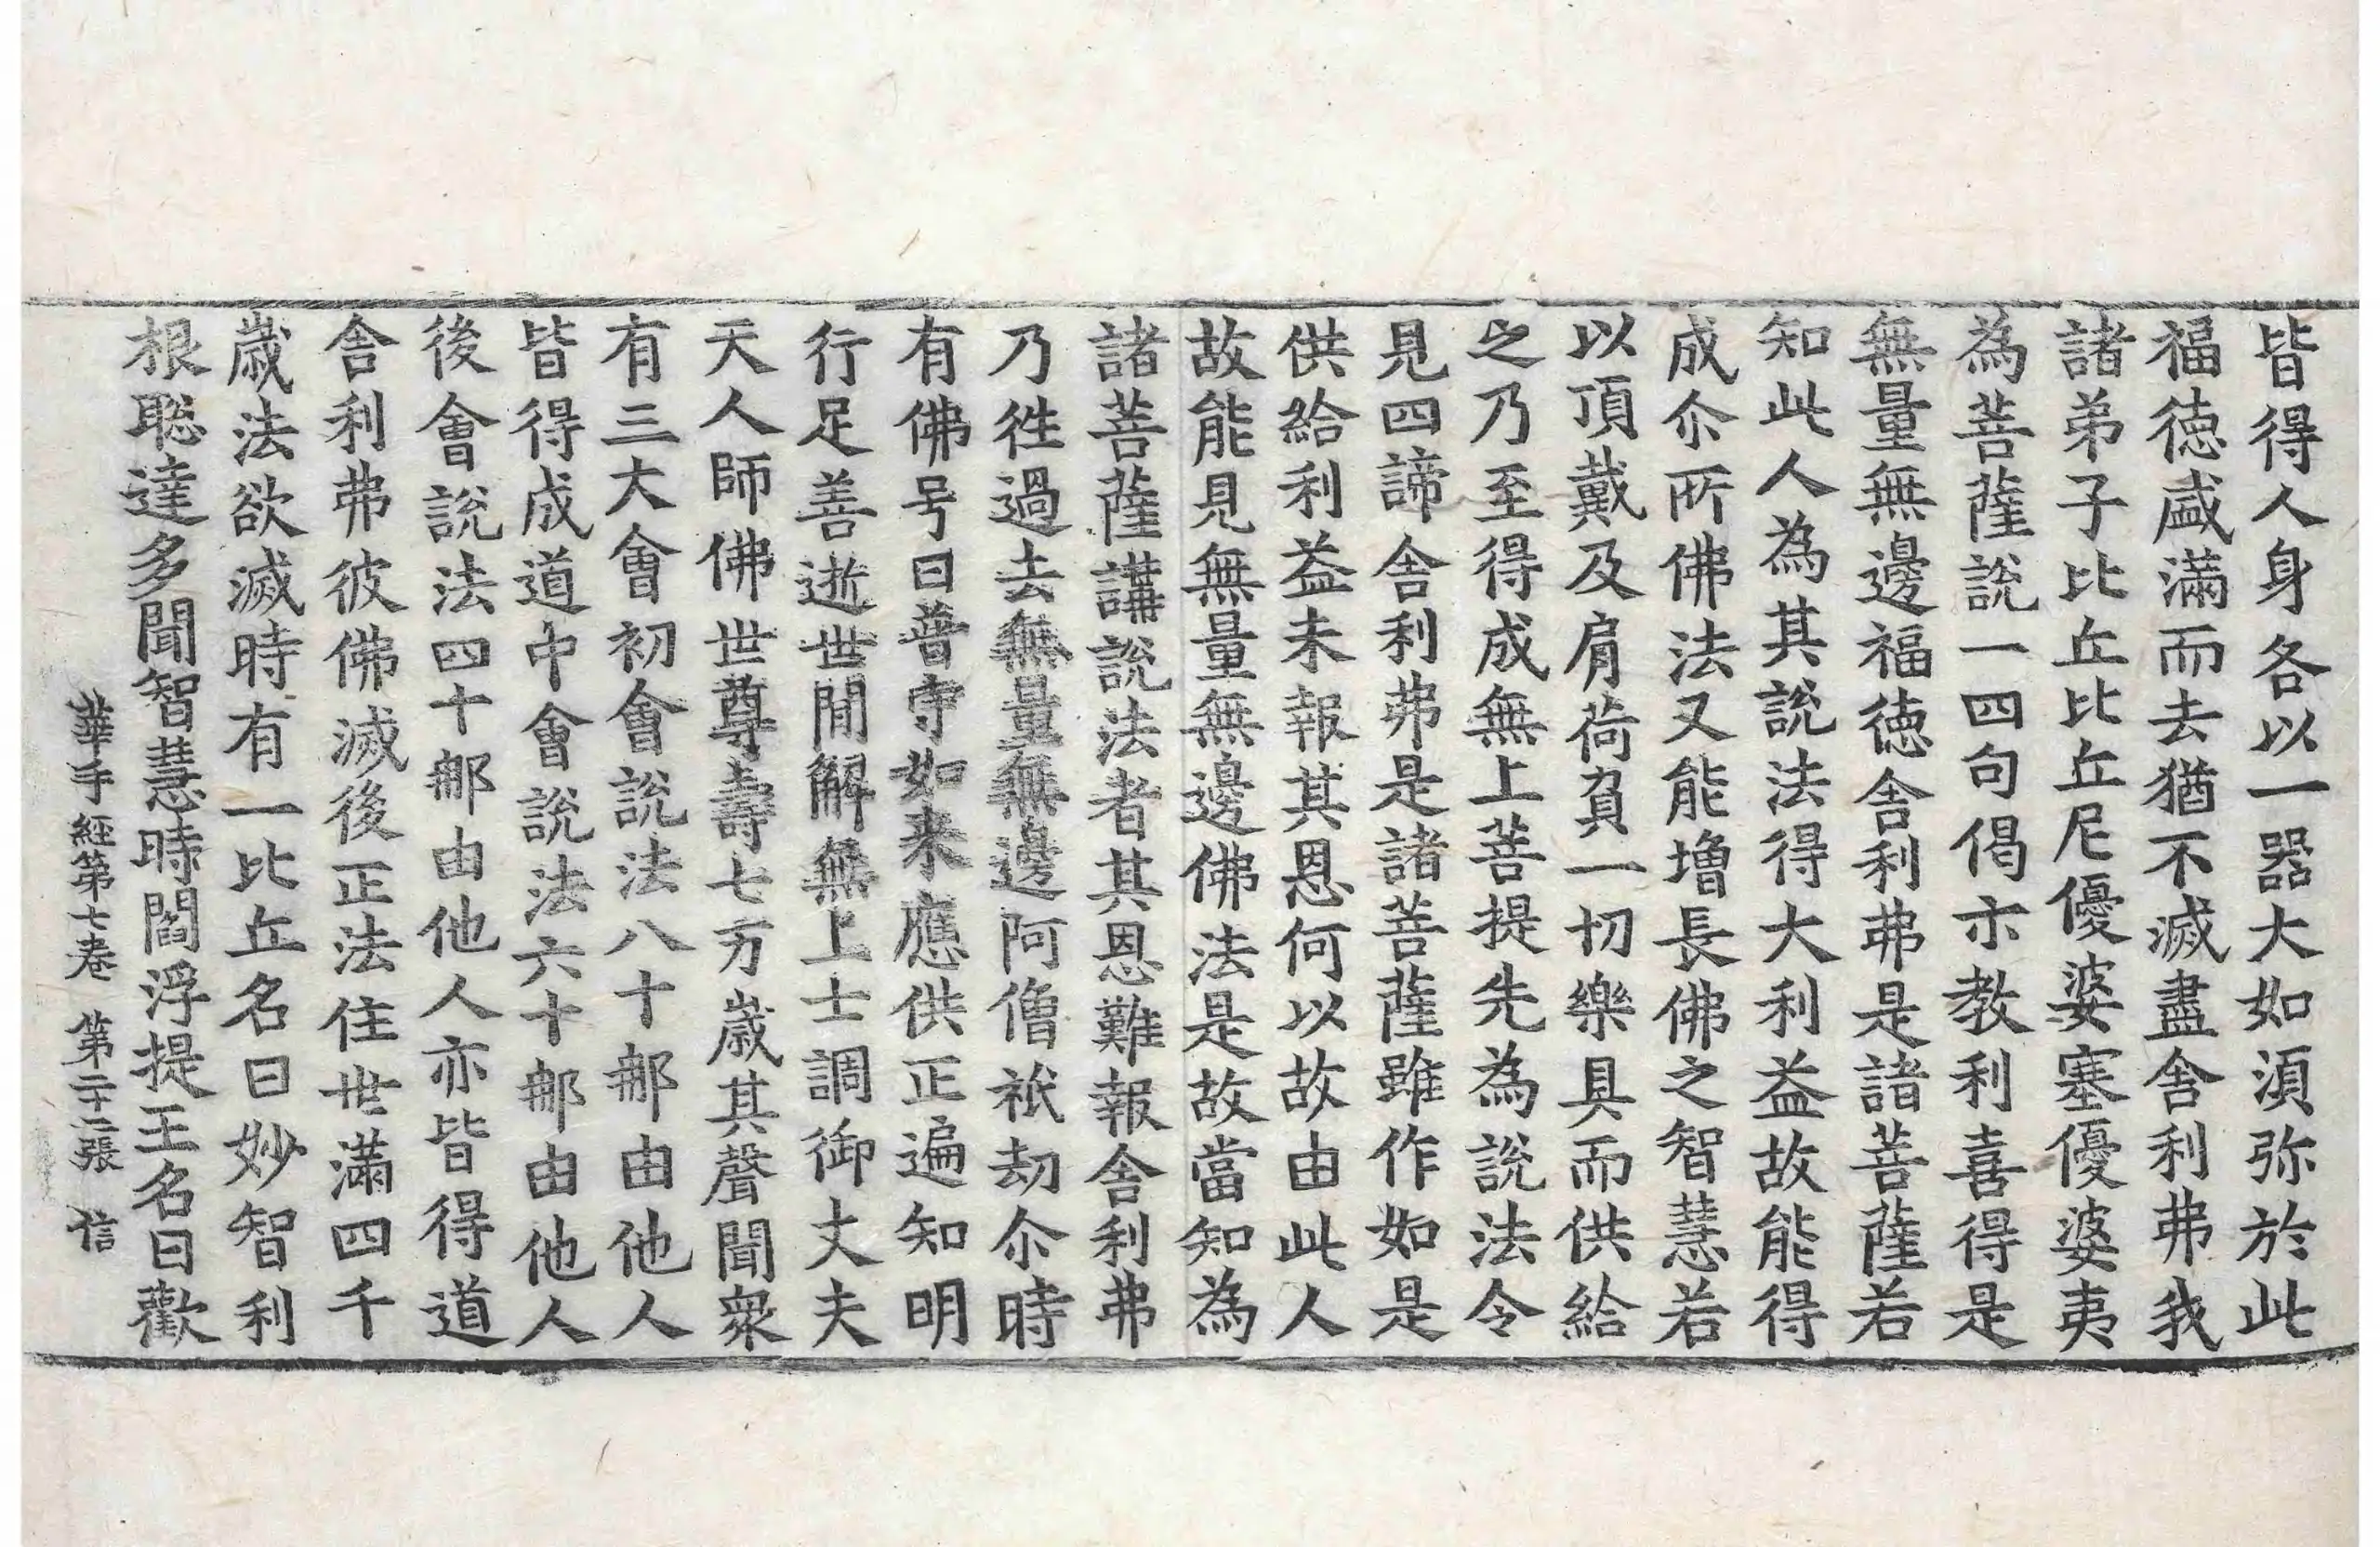 皆得人身各以一器大如湏弥於此
福德盛滿而去猶不滅盡舎利弗我
諸弟子比丘比丘尼優婆塞優婆夷
為菩薩說一四句偈亦教利喜得是
無量無邊福德舎利弗是諸菩薩若
知此人為其說法得大利益故能得
成尒所佛法又能增長佛之智慧若
以頂戴及肩荷負一切樂具而供給
之乃至得成無上菩提先為說法令
見四諦舎利弗是諸菩薩雖作如是
供給利益未報其恩何以故由此人
故能見無量無邊佛法是故當知為
諸菩薩講說法者其恩難報舎利弗
乃徃過去無量無邊阿僧祇劫尒時
有佛号曰普守如来應供正遍知明
行足善逝世閒解無上士調御丈夫
天人師佛世尊壽七万歲其聲聞衆
有三大會初會說法八十那由他人
皆得成道中會說法六十那由他人
後會說法四十那由他人亦皆得道
舎利弗彼佛滅後正法住世滿四千
歲法欲滅時有一比丘名曰妙智利
根聡達多聞智慧時閻浮提王名曰歡
華手經第七卷 第二十二張 信